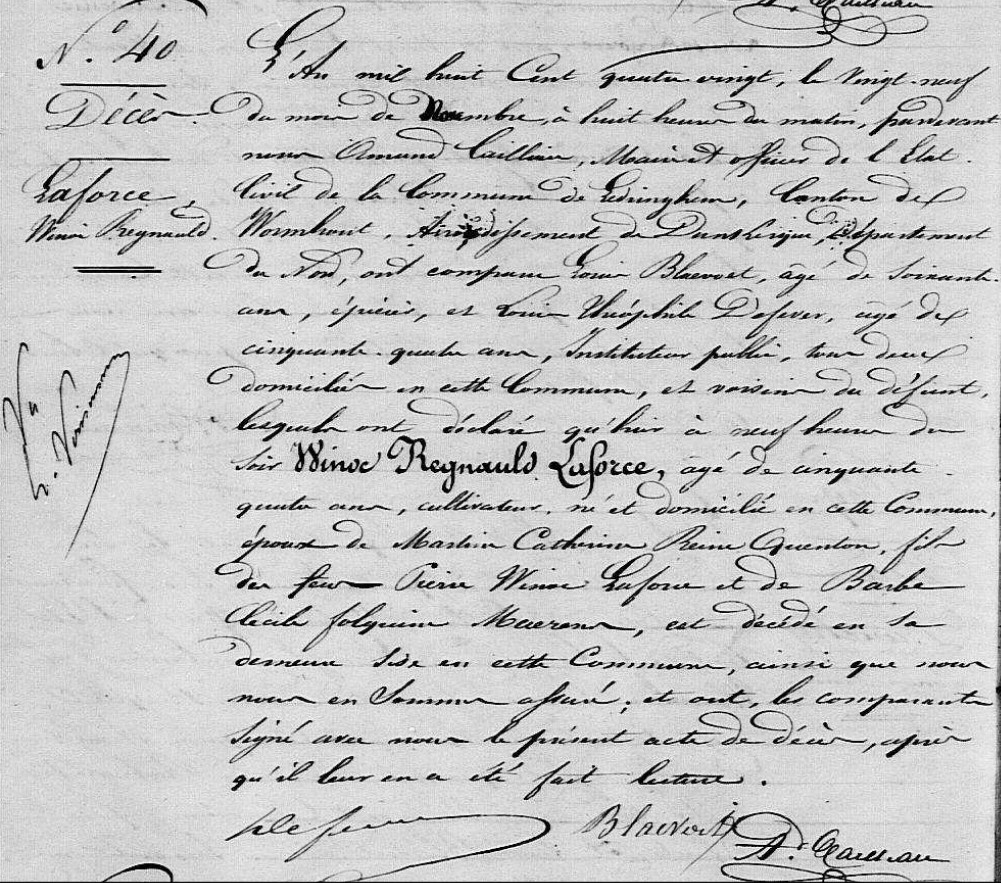 N.° 40
Décès
Laforce,
Winoc Regnauld.
Vu
L'An mil huit Cent quatre vingt, le vingt-neuf
du mois de Novembre, à huit heures du matin, pardevant
nous Amand Cailliau, Maire et officier de l'Etat
Civil de la Commune de Ledringhem, Canton de
Wormhout, Arrondissement de Dunkerque, Département
du Nord, ont comparu Louis Blaevoet, âgé de soixante
ans, épicier, et Louis Théophile Defever, âgé de
cinquante-quatre ans, Instituteur public, tous deux
domiciliés en cette Commune, et voisins du défunt,
lesquels ont déclaré qu'hier à neuf heures du
soir Winoc Regnauld Laforce, âgé de cinquante
quatre ans, cultivateur, né et domicilié en cette Commune,
époux de Martine Catherine Reine Quenton, fils
des feus Pierre Winoc Laforce et de Barbe
Cécile folquine Maerens, est décédé en sa
demeure sise en cette Commune, ainsi que nous
nous en sommes assuré; et ont, les comparants
signé avec nous le présent acte de décès, après
qu'il leur en a été fait lecture.
Defever Blaevoet Ad. Cailliau